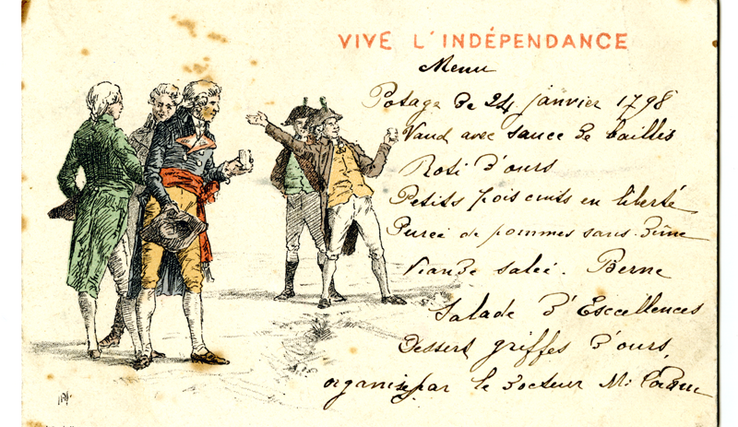 VIVE L'INDÉPENDANCE
Menu
Potage de 24 janvier 1798
Vaud avec sauce de baillis
Roti d'ours
Petits pois cuits en liberté
Purée de pommes sans dîme
Viande salée. Berne
Salade d'Excellences
Dessert griffes d'ours,
organisé par le docteur M: